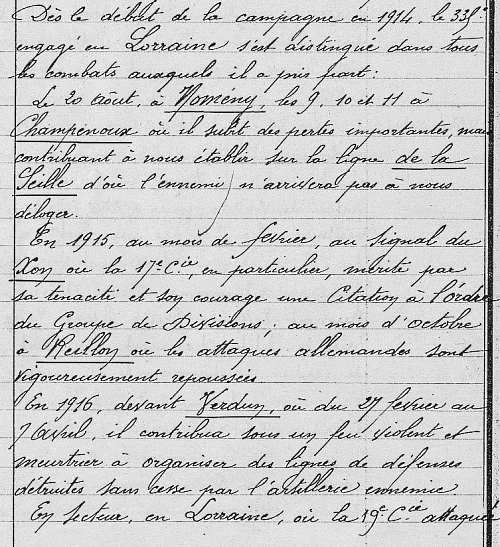 Dès le début de la campagne en 1914, le 335e
engagé en Lorraine s'est distingué dans tous
les combats auxquels il a pris part :
Le 20 Août, à Nomény, les 9, 10 et 11 à
Champenoux où il subit des pertes importantes, mais
contribuant à nous établir sur la ligne de la
Seille d'où l'ennemi n'arrivera pas à nous
déloger.
En 1915, au mois de février, au signal du
Xon où la 17e Cie, en particulier, mérite par
sa tenacité et son courage une Citation à l'ordre
du Groupe de Divisions ; au mois d'octobre
à Reillon où les attaques allemandes sont
vigoureusement repoussées.
En 1916, devant Verdun, où du 27 février au
7 Avril, il contribua sous un feu violent et
meurtrier à organiser des lignes de défenses
détruites sans cesse par l'artillerie ennemie.
En secteur, en Lorraine, où la 19e Cie attaquée